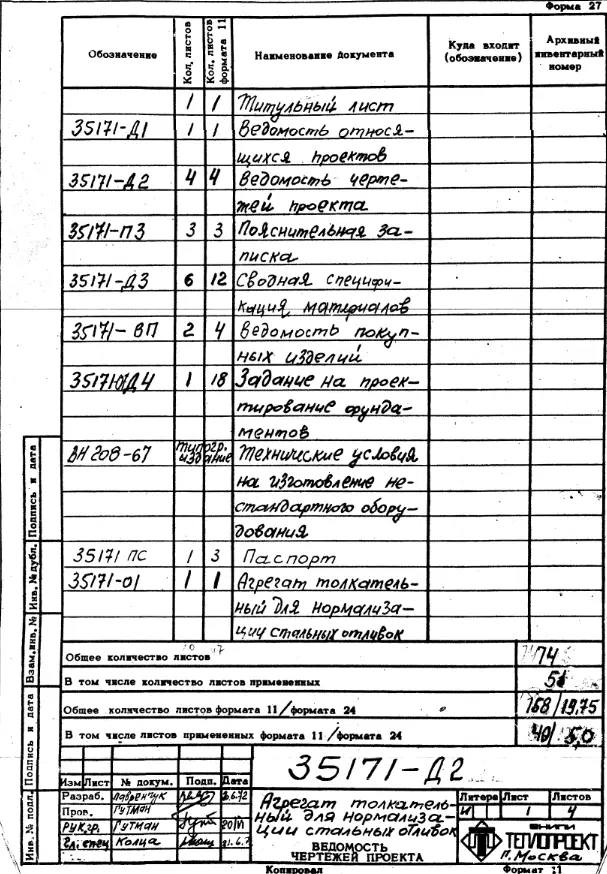 Форма 27
Обозначение Кол. листов Кол. листов формата 11 Наименование Документа Куда входит (обозначение) Архивный инвентарный номер
1 1 Титульный лист
35171-Д1 1 1 Ведомость относя-
щихся проектов
35171-Д2 4 4 Ведомость черте-
жей проекта
35171-ПЗ 3 3 Пояснительная за-
писка
35171-Д3 6 12 Сводная специфи-
кация материалов
35171-ВП 2 4 Ведомость покуп-
ных изделий
35171-Д4 1 18 Задание на проек-
тирование фунда-
ментов
ВН 208-67 типогр. издание Технические условия
на изготовление не-
стандартного обору-
дования
35171 ПС 1 3 Паспорт
35171-01 1 1 Агрегат толкатель-
ный для нормализа-
ции стальных отливок
Общее количество листов 174
В том числе количество листов примененных 51
Общее количество листов формата 11/формата 24 158/19,75
В том числе листов примененных формата 11/формата 24 40/5,0
Инв. № подл. Подпись и дата Взам.инв. № Инв. № дубл. Подпись и дата
35171-Д2
Изм Лист № докум. Подп. Дата
Разраб. Лавренчук
Пров. Гутман
Рук.гр. Гутман 20/VI
Гл. спец Колца
Агрегат толкатель-
ный для нормализа-
ции стальных отливок
ВЕДОМОСТЬ
ЧЕРТЕЖЕЙ ПРОЕКТА
Литера Лист Листов
И 1 4
ВНИПИ
ТЕПЛОПРОЕКТ
г. Москва
Копировал Формат 11